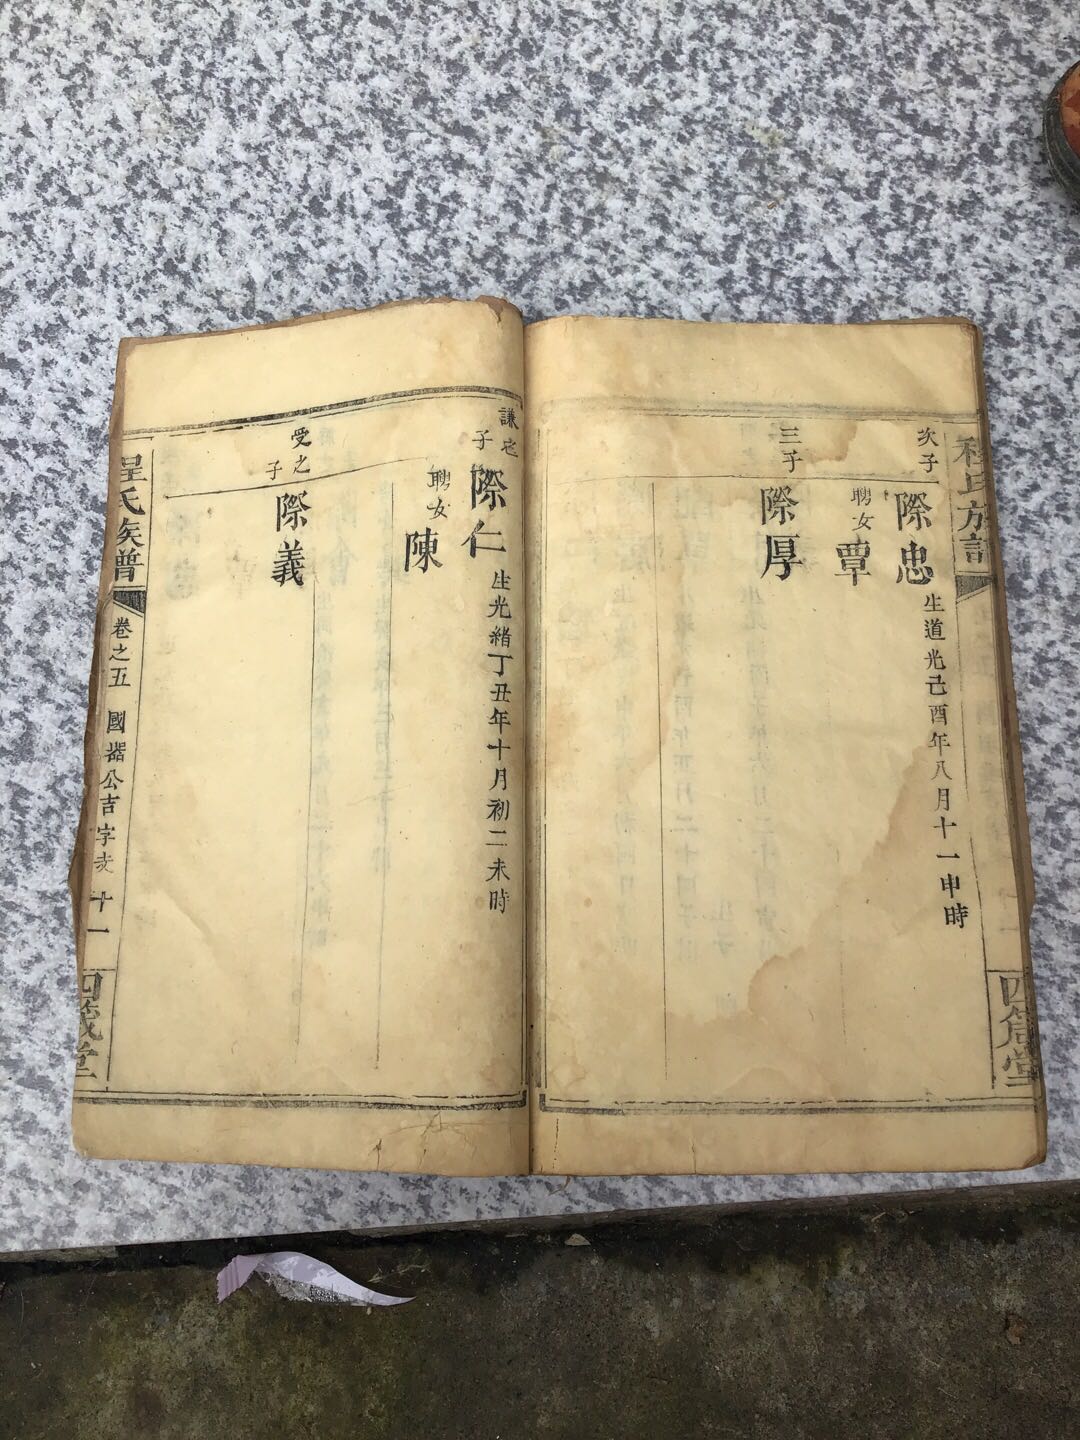 程氏族譜
次子
際忠
生道光己酉年八月十一申時
聘女
覃
三子
際厚
四箴堂
謙
子
際仁
生光緒丁丑年十月初二未時
聘女
陳
受之
子
際義
程氏族譜
卷之五
國器公吉字
十一
四箴堂